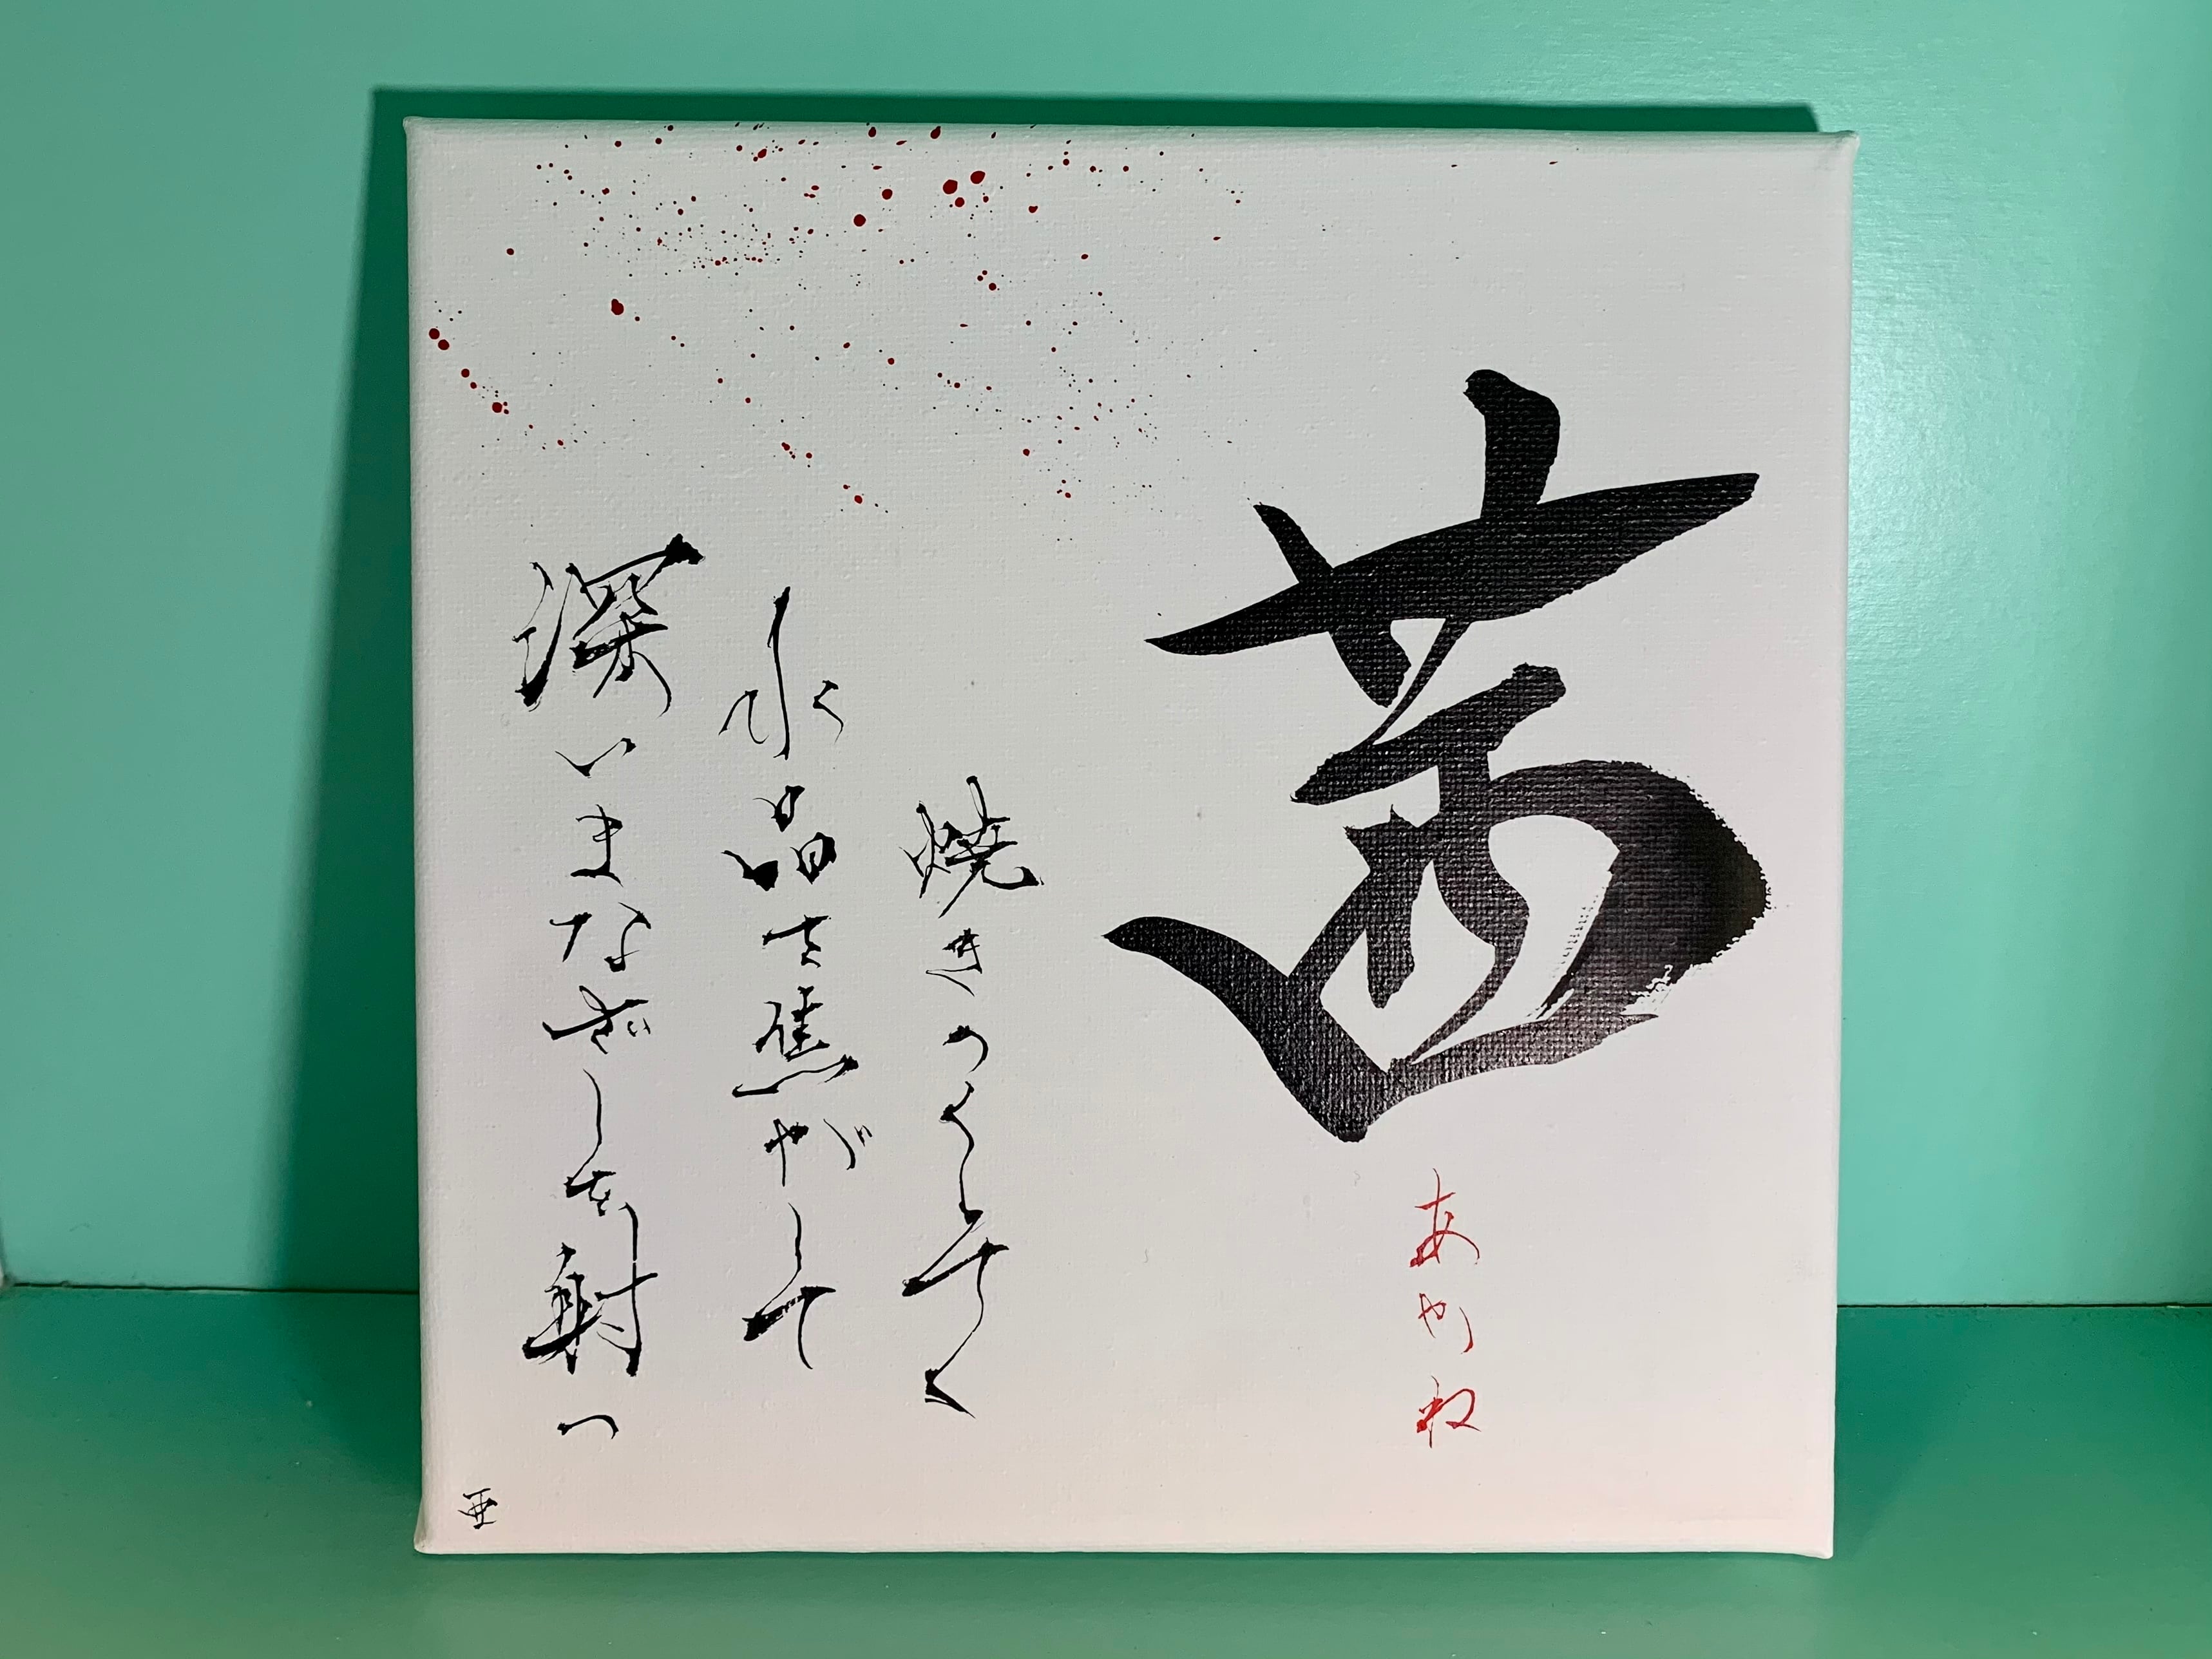 茜
あかね
焼きつくしてく
水晶を焦がして
深いまなざしを射つ
亜